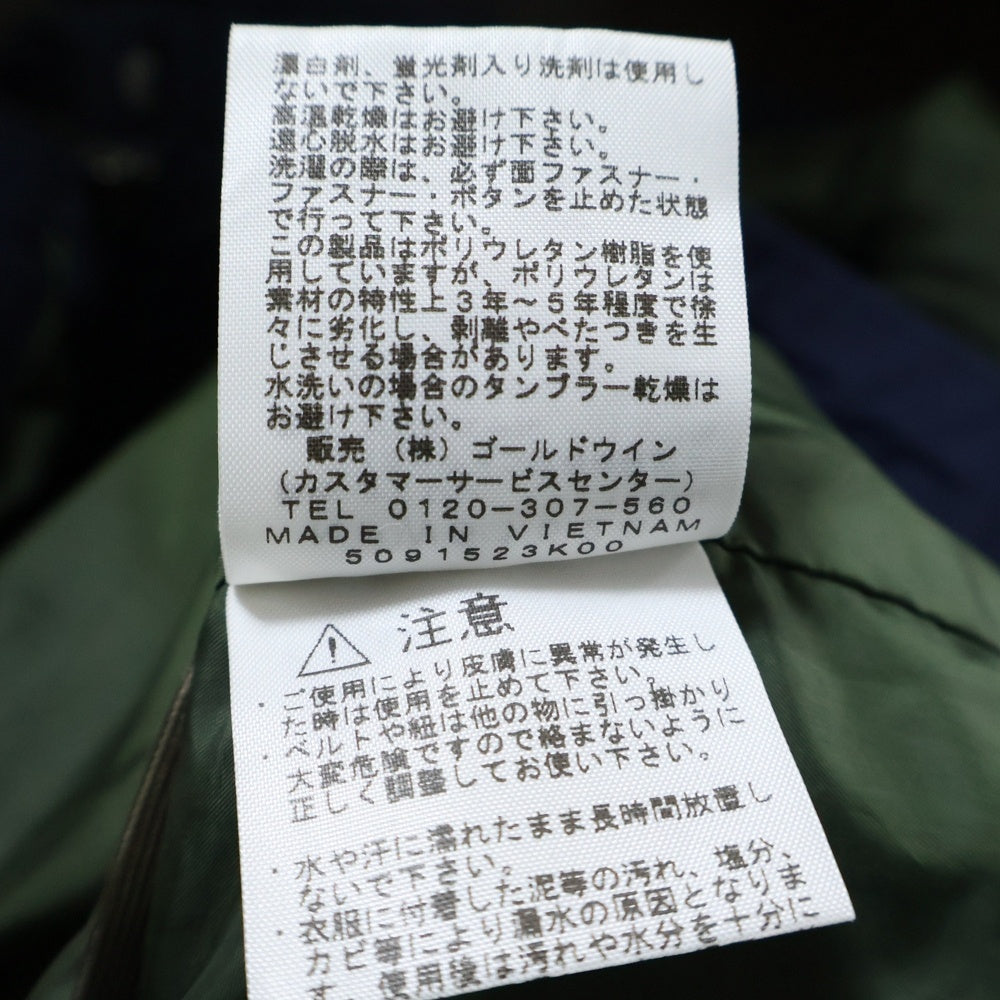 漂白剤、蛍光剤入り洗剤は使用し
ないで下さい。
高温乾燥はお避け下さい。
遠心脱水はお避け下さい。
洗濯の際は、必ず面ファスナー・
ファスナー・ボタンを止めた状態
で行って下さい。
この製品はポリウレタン樹脂を使
用していますが、ポリウレタンは
素材の特性上3年～5年程度で徐
々に劣化し、剥離やべたつきを生
じさせる場合があります。
水洗いの場合のタンブラー乾燥は
お避け下さい。
販売 (株)ゴールドウイン
(カスタマーサービスセンター)
TEL 0120-307-560
MADE IN VIETNAM
5091523K00
注意
・ご使用により皮膚に異常が発生し
た時は使用を止めて下さい。
・ベルトや紐は他の物に引っ掛かり
大変危険ですので絡まないように
正しく調整してお使い下さい。
・水や汗に濡れたまま長時間放置し
ないで下さい。
・衣服に付着した泥等の汚れ、塩分、
カビ等により漏水の原因となりま
す。使用後は汚れや水分を十分に